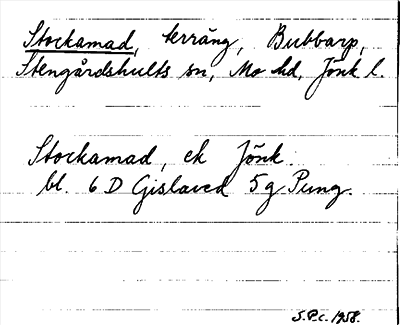 Stockamad, terräng, Bubbarp,
Stengårdshults sn, Mo hd, Jönk l.
Stockamad, ek Jönk.
bl. 6 D Gislaved 5 g Pung.
S.P.C. 1958.